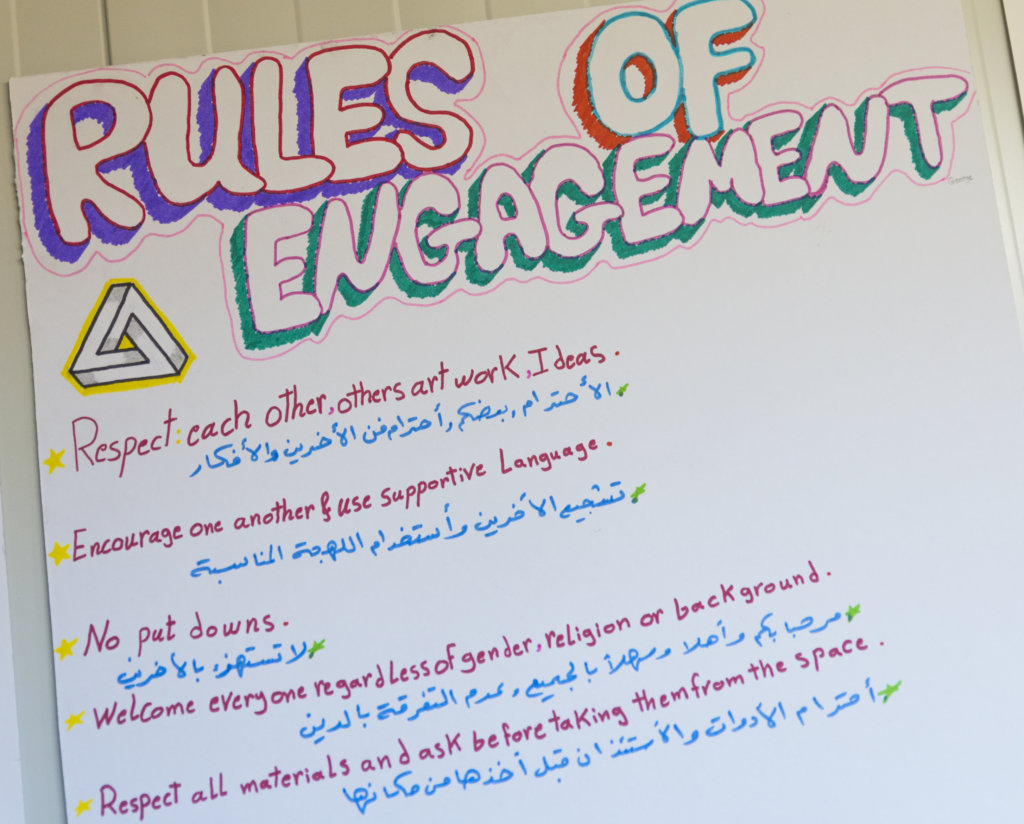 RULES OF
ENGAGEMENT
George
Respect: each other, others art work, Ideas.
الأحترام, بعضكم, أحترام فن الأخرين والأفكار
Encourage one another & use supportive Language.
تشجيع الأخرين وأستخدام اللهجة المناسبة
No put downs.
لا تستهزء بالأخرين
Welcome everyone regardless of gender, religion or background.
مرحبا بكم وأهلا وسهلاً بالجميع وعدم التفرقة بالدين
Respect all materials and ask before taking them from the space.
أحترام الأدوات والأستئذان قبل أخذها من مكانها